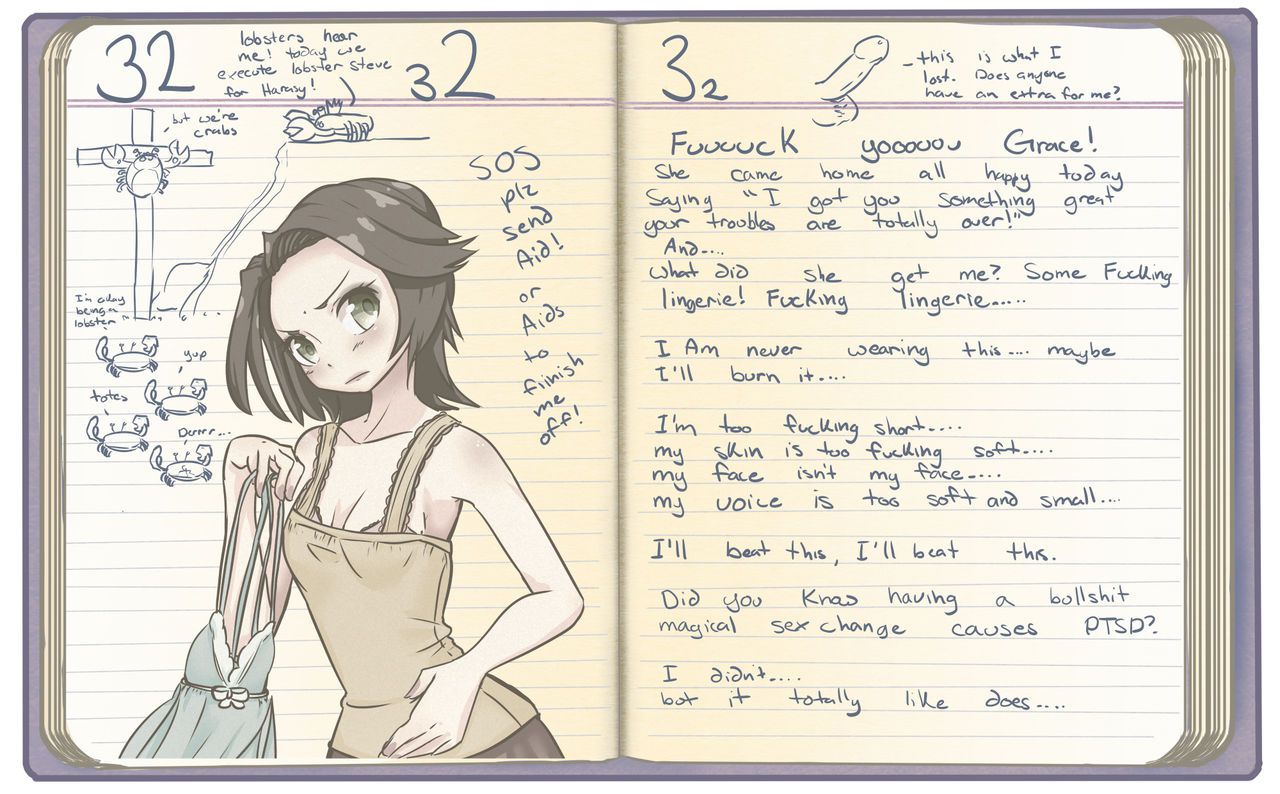 32
lobsters hear
me! today we
execute lobster steve
for Harasy!
32
but we're
crabs
SOS
plz
send
Aid!
or
Aids
to
fiinish
me
off!
I'm okay
being a
lobster
yup
totes
Derrrr...
32
-this is what I
lost. Does anyone
have an extra for me?
Fuuuuck yooooou Grace!
She came home all happy today
Saying "I got you something great
your troubles are totally over!"
And....
What did she get me? Some Fucking
lingerie! Fucking lingerie.....
I Am never wearing this.... maybe
I'll burn it....
I'm too fucking short....
my skin is too fucking soft....
my face isn't my face.....
my voice is too soft and small....
I'll beat this, I'll beat this.
Did you Know having a bullshit
magical sex change causes PTSD?
I didn't....
but it totally like does....